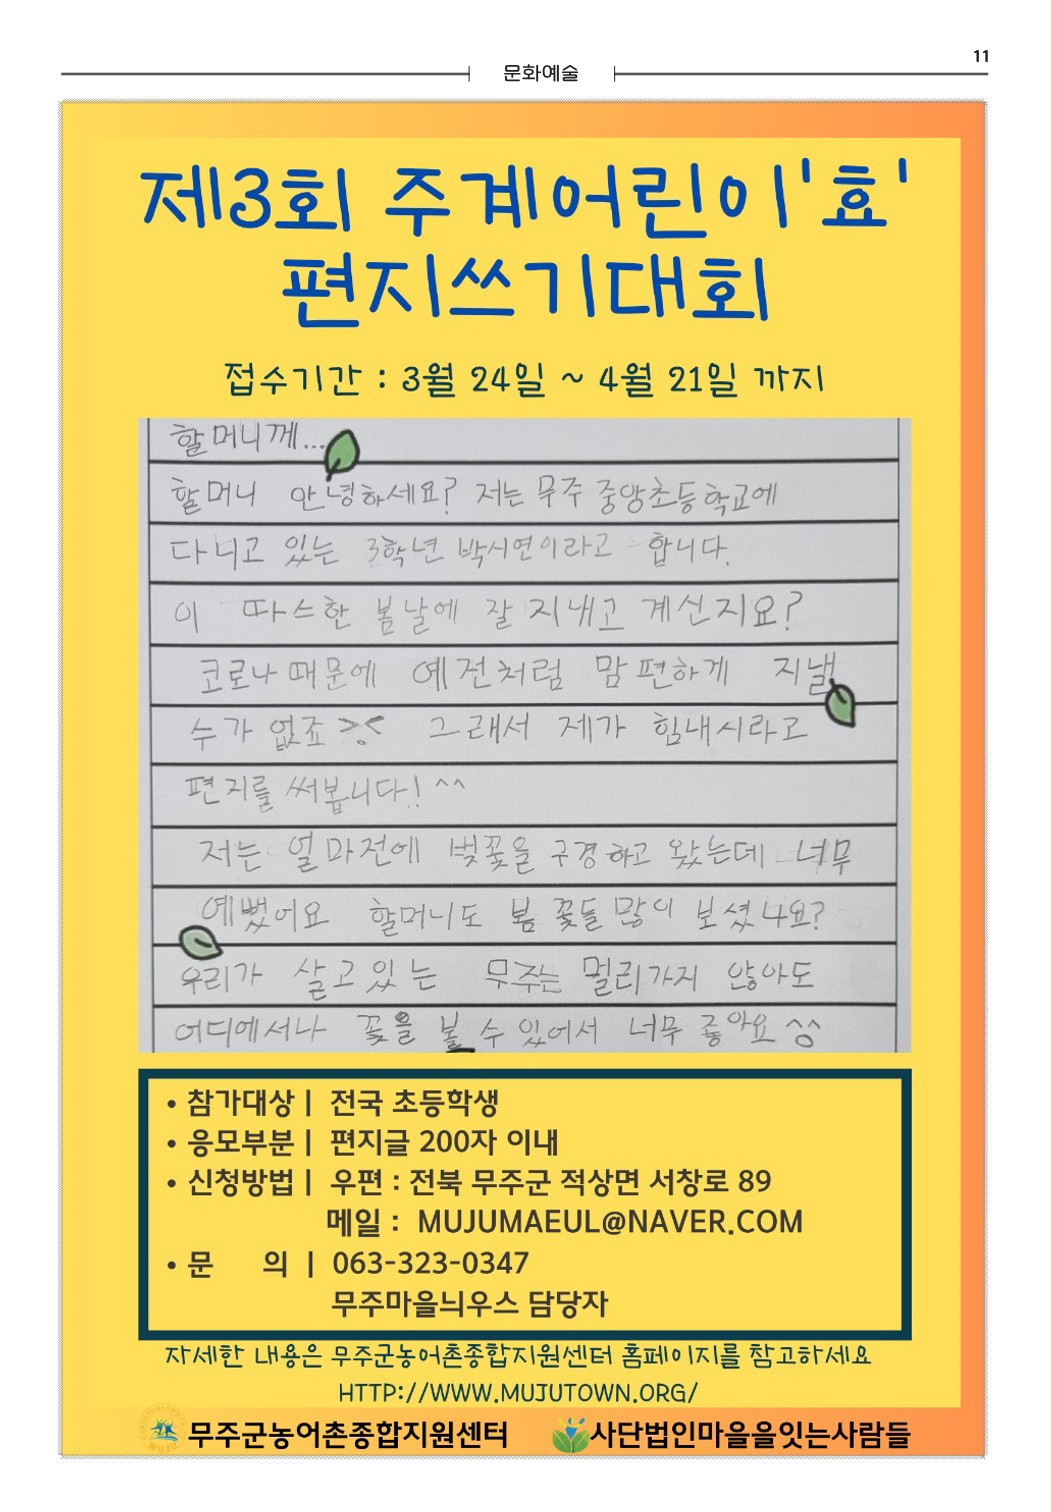 11
문화예술
제3회 주계어린이'효'
편지쓰기대회
접수기간 : 3월 24일 ~ 4월 21일 까지
할머니께...
할머니 안녕하세요? 저는 무주 중앙초등학교에
다니고 있는 3학년 박시연이라고 합니다.
이 따스한 봄날에 잘 지내고 계신지요?
코로나때문에 예전처럼 맘편하게 지낼
수가 없죠 >;< 그래서 제가 힘내시라고
편지를 써봅니다! ^^
저는 얼마전에 벚꽃을 구경하고 왔는데 너무
예뻤어요 할머니도 봄 꽃들 많이 보셨나요?
우리가 살고있는 무주는 멀리가지 않아도
어디에서나 꽃을 볼 수 있어서 너무 좋아요 ^^
• 참가대상 | 전국 초등학생
• 응모부분 | 편지글 200자 이내
• 신청방법 | 우편 : 전북 무주군 적상면 서창로 89
메일 : MUJUMAEUL@NAVER.COM
• 문 의 | 063-323-0347
무주마을늬우스 담당자
자세한 내용은 무주군농어촌종합지원센터 홈페이지를 참고하세요
HTTP://WWW.MUJUTOWN.ORG/
무주군농어촌종합지원센터 사단법인마을을잇는사람들